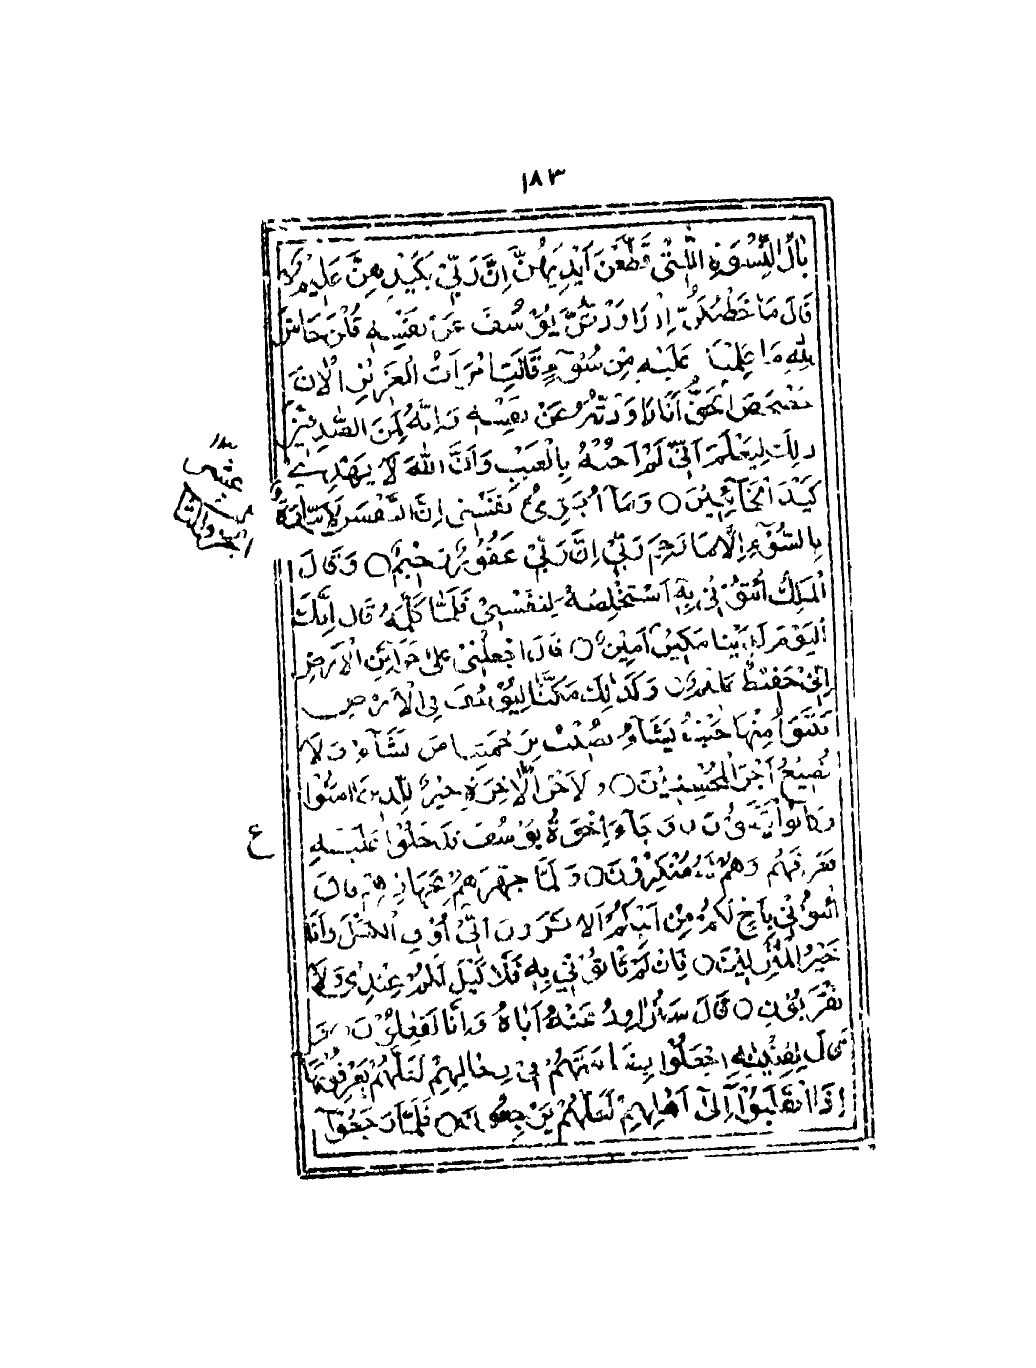 ١٨٣
بَالُ النِّسْوَةِ اللّٰتِيْ قَطَّعْنَ اَيْدِيَهُنَّ اِنَّ رَبِّيْ بِكَيْدِهِنَّ عَلِيْمٌ
قَالَ مَا خَطْبُكُنَّ اِذْ رَاوَدْتُّنَّ يُوْسُفَ عَنْ نَفْسِهٖ قُلْنَ حَاشَ
لِلّٰهِ مَا عَلِمْنَا عَلَيْهِ مِنْ سُوْٓءٍ قَالَتِ امْرَاَتُ الْعَزِيْزِ الْاٰنَ
حَصْحَصَ الْحَقُّ اَنَا رَاوَدْتُّهٗ عَنْ نَفْسِهٖ وَاِنَّهٗ لَمِنَ الصّٰدِقِيْنَ
ذٰلِكَ لِيَعْلَمَ اَنِّيْ لَمْ اَخُنْهُ بِالْغَيْبِ وَاَنَّ اللّٰهَ لَا يَهْدِيْ
كَيْدَ الْخَآئِنِيْنَ ○ وَمَآ اُبَرِّئُ نَفْسِيْ اِنَّ النَّفْسَ لَاَمَّارَةٌ
بِالسُّوْٓءِ اِلَّا مَا رَحِمَ رَبِّيْ اِنَّ رَبِّيْ غَفُوْرٌ رَّحِيْمٌ ○ وَقَالَ
الْمَلِكُ ائْتُوْنِيْ بِهٖٓ اَسْتَخْلِصْهُ لِنَفْسِيْ فَلَمَّا كَلَّمَهٗ قَالَ اِنَّكَ
الْيَوْمَ لَدَيْنَا مَكِيْنٌ اَمِيْنٌ ○ قَالَ اجْعَلْنِيْ عَلٰى خَزَآئِنِ الْاَرْضِ
اِنِّيْ حَفِيْظٌ عَلِيْمٌ وَكَذٰلِكَ مَكَّنَّا لِيُوْسُفَ فِي الْاَرْضِ
يَتَبَوَّاُ مِنْهَا حَيْثُ يَشَآءُ نُصِيْبُ بِرَحْمَتِنَا مَنْ نَّشَآءُ وَلَا
نُضِيْعُ اَجْرَ الْمُحْسِنِيْنَ ○ وَلَاَجْرُ الْاٰخِرَةِ خَيْرٌ لِّلَّذِيْنَ اٰمَنُوْا
وَكَانُوْا يَتَّقُوْنَ ○ وَجَآءَ اِخْوَةُ يُوْسُفَ فَدَخَلُوْا عَلَيْهِ
فَعَرَفَهُمْ وَهُمْ لَهٗ مُنْكِرُوْنَ ○ وَلَمَّا جَهَّزَهُمْ بِجَهَازِهِمْ قَالَ
ائْتُوْنِيْ بِاَخٍ لَّكُمْ مِّنْ اَبِيْكُمْ اَلَا تَرَوْنَ اَنِّيْٓ اُوْفِي الْكَيْلَ وَاَنَا
خَيْرُ الْمُنْزِلِيْنَ ○ فَاِنْ لَّمْ تَاْتُوْنِيْ بِهٖ فَلَا كَيْلَ لَكُمْ عِنْدِيْ وَلَا
تَقْرَبُوْنِ ○ قَالُوْا سَنُرَاوِدُ عَنْهُ اَبَاهُ وَاِنَّا لَفٰعِلُوْنَ وَ
قَالَ لِفِتْيٰنِهِ اجْعَلُوْا بِضَاعَتَهُمْ فِيْ رِحَالِهِمْ لَعَلَّهُمْ يَعْرِفُوْنَهَا
اِذَا انْقَلَبُوْٓا اِلٰٓى اَهْلِهِمْ لَعَلَّهُمْ يَرْجِعُوْنَ ○ فَلَمَّا رَجَعُوْٓا
ع